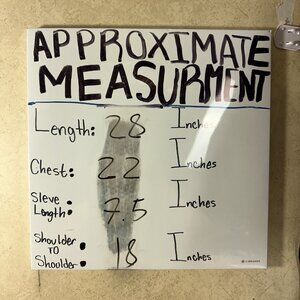 APPROXIMATE
MEASURMENT
Length: 28 Inches
Chest: 22 Inches
Sleve
Length: 7.5 Inches
Shoulder
TO
Shoulder: 18 Inches